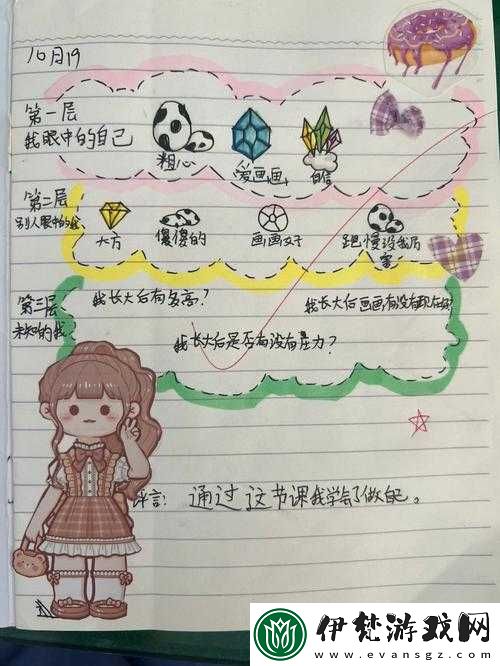 10月19
第一层
我眼中的自己
粗心
爱画画
自信
第二层
别人眼中的我
大方
傻傻的
画画好
跑慢没我厉
害
第三层
未知的我
我长大后有多高?
我长大后画画有没有现在好?
我长大后是否有没有压力?
评言: 通过这节课我学会了做自己。
伊梵游戏网
www.evansgz.com